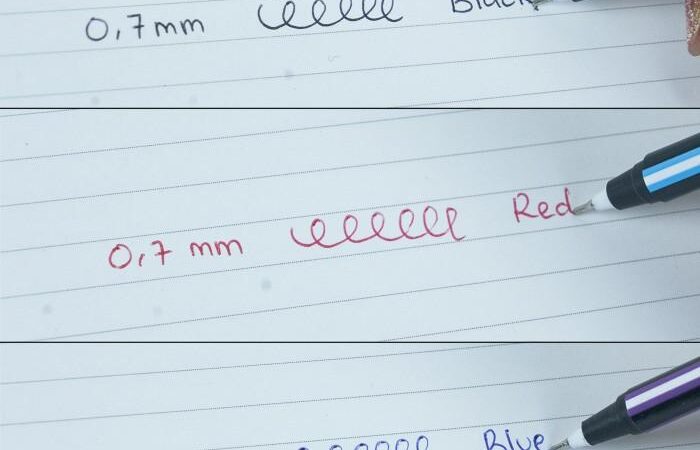 0,7 mm Black
0,7 mm Red
Blue